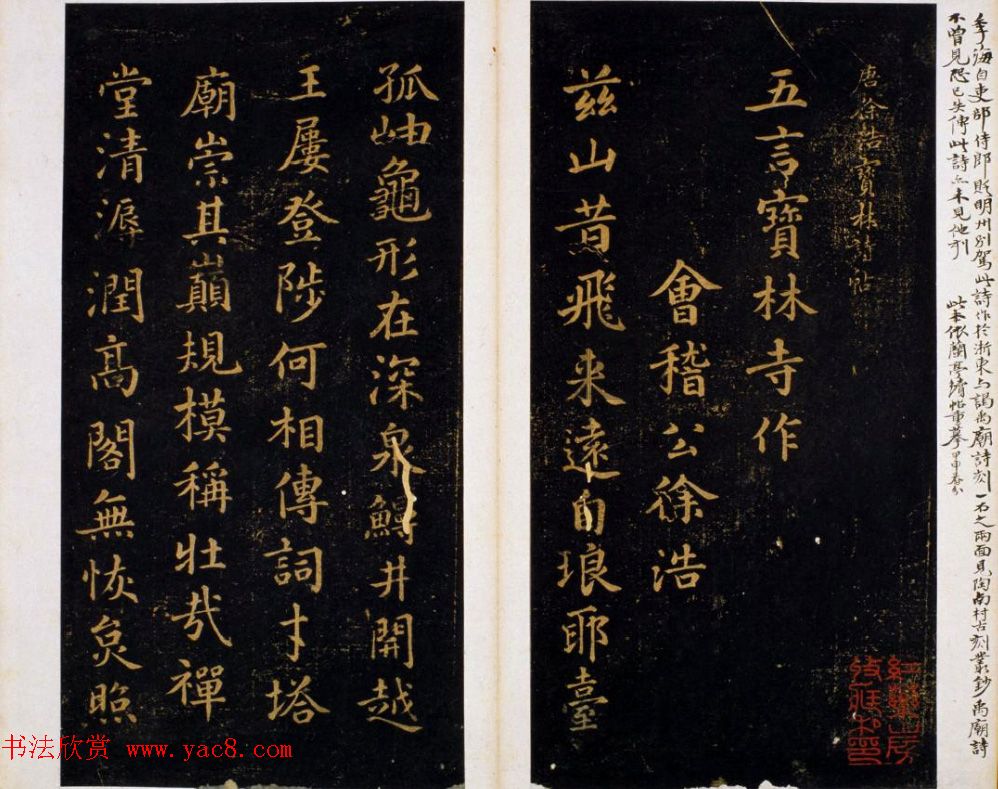 季海自吏部侍郎貶明州別駕此詩作於浙東与謁禹廟詩刻一石之兩面見陶南村古刻叢鈔禹廟詩
不曾見恐已失傳此詩亦未見他刊
此本依蘭亭續帖重摹甲申春分
唐徐浩寶林詩帖
五言寶林寺作
會稽公徐浩
茲山昔飛来遠自琅耶臺
孤岫龜形在深泉鰻井開越
王屢登陟何相傳詞才塔
廟崇其巔規模稱壯哉禪
堂清溽潤高閣無恢炱照
书法欣赏 www.yac8.com